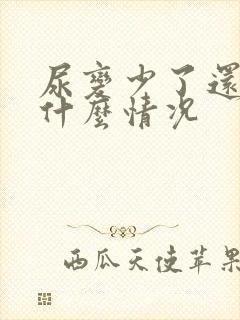 尿變少了還
什麼情况
西瓜天使苹果